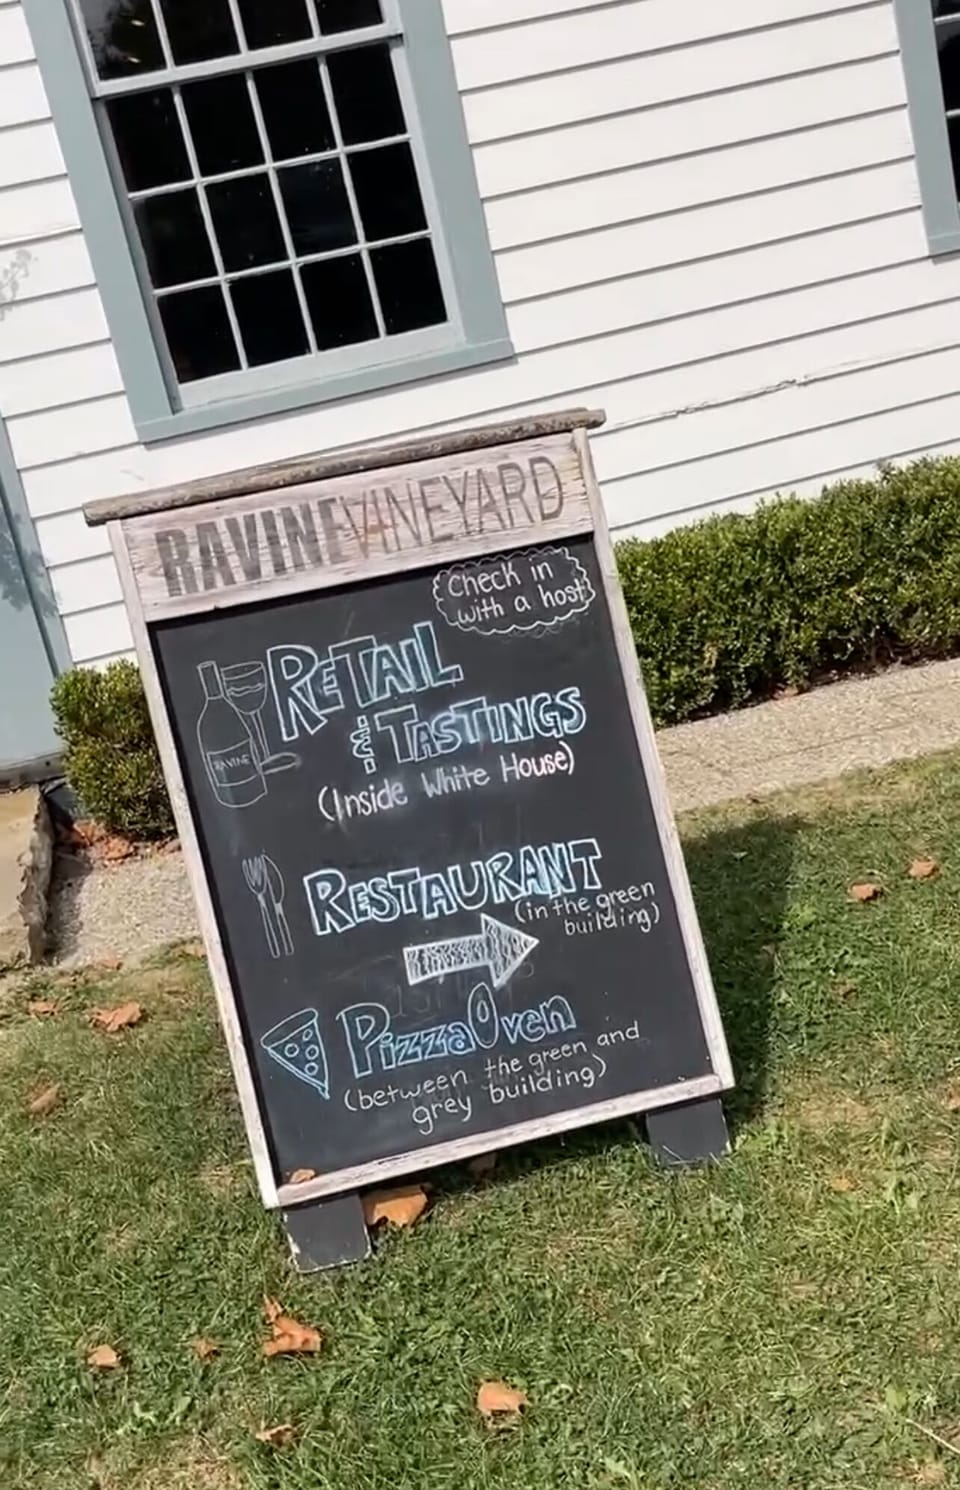 RAVINEVINEYARD
Check in
with a host
RETAIL
& TASTINGS
RAVINE
(Inside White House)
RESTAURANT
(in the green
building)
PizzaOven
(between the green and
grey building)